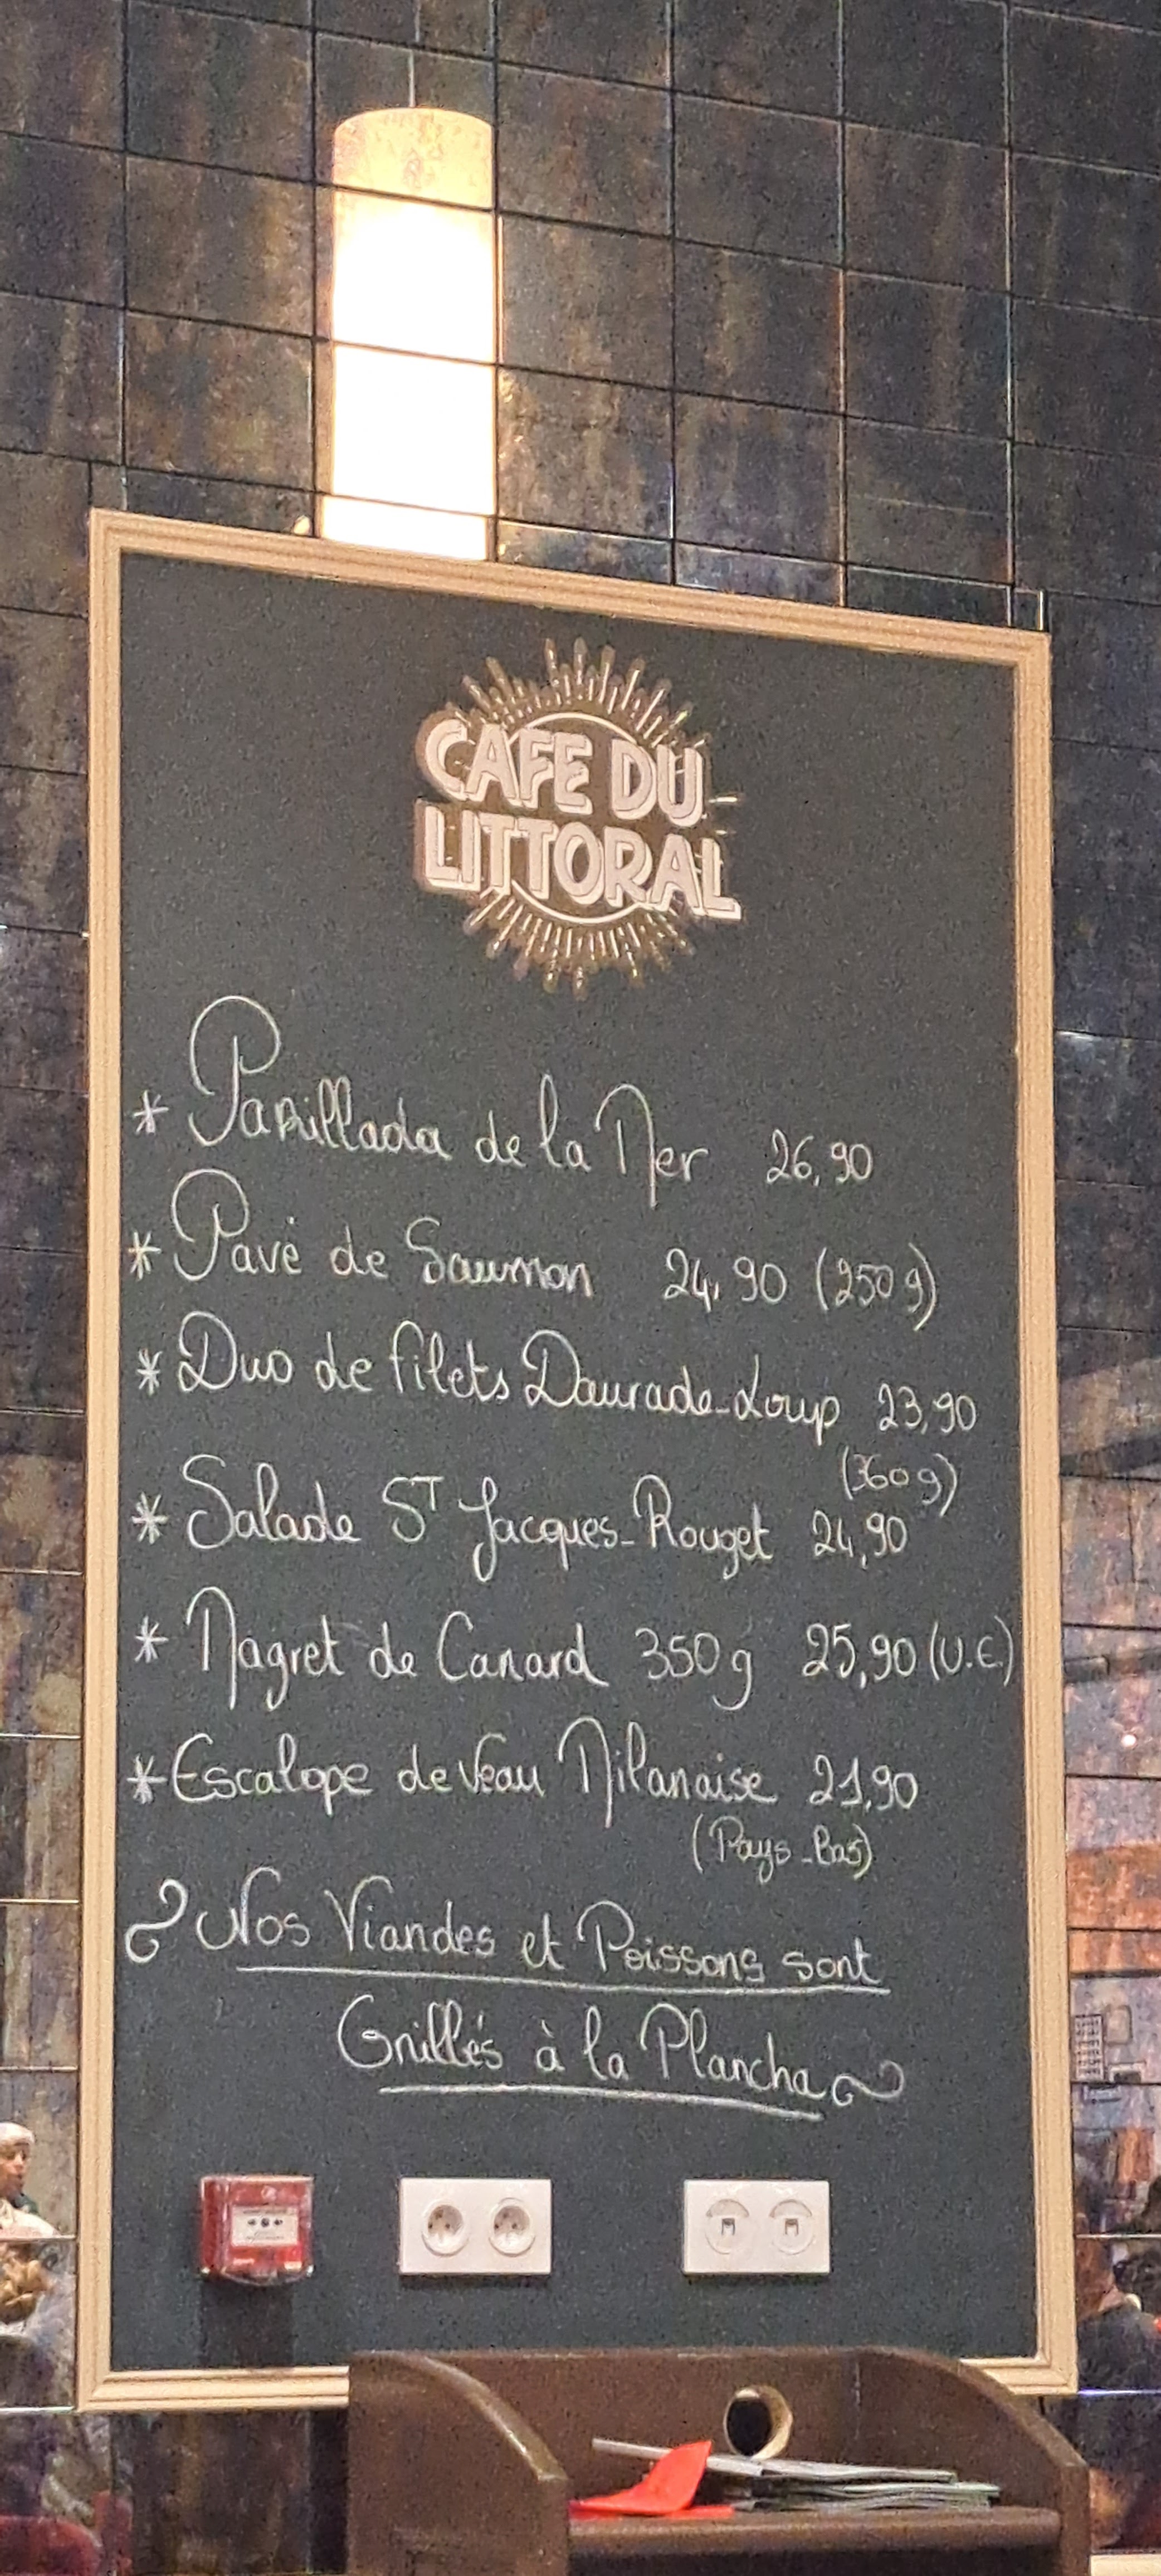 CAFE DU
LITTORAL
* Parillada de la Mer 26,90
* Pavé de Saumon 24,90 (250 g)
* Duo de filets Daurade-Loup 23,90
(360 g)
* Salade ST Jacques-Rouget 24,90
* Magret de Canard 350 g 25,90 (U.E.)
* Escalope de Veau Milanaise 21,90
(Pays-Bas)
Nos Viandes et Poissons sont
Grillés à la Plancha